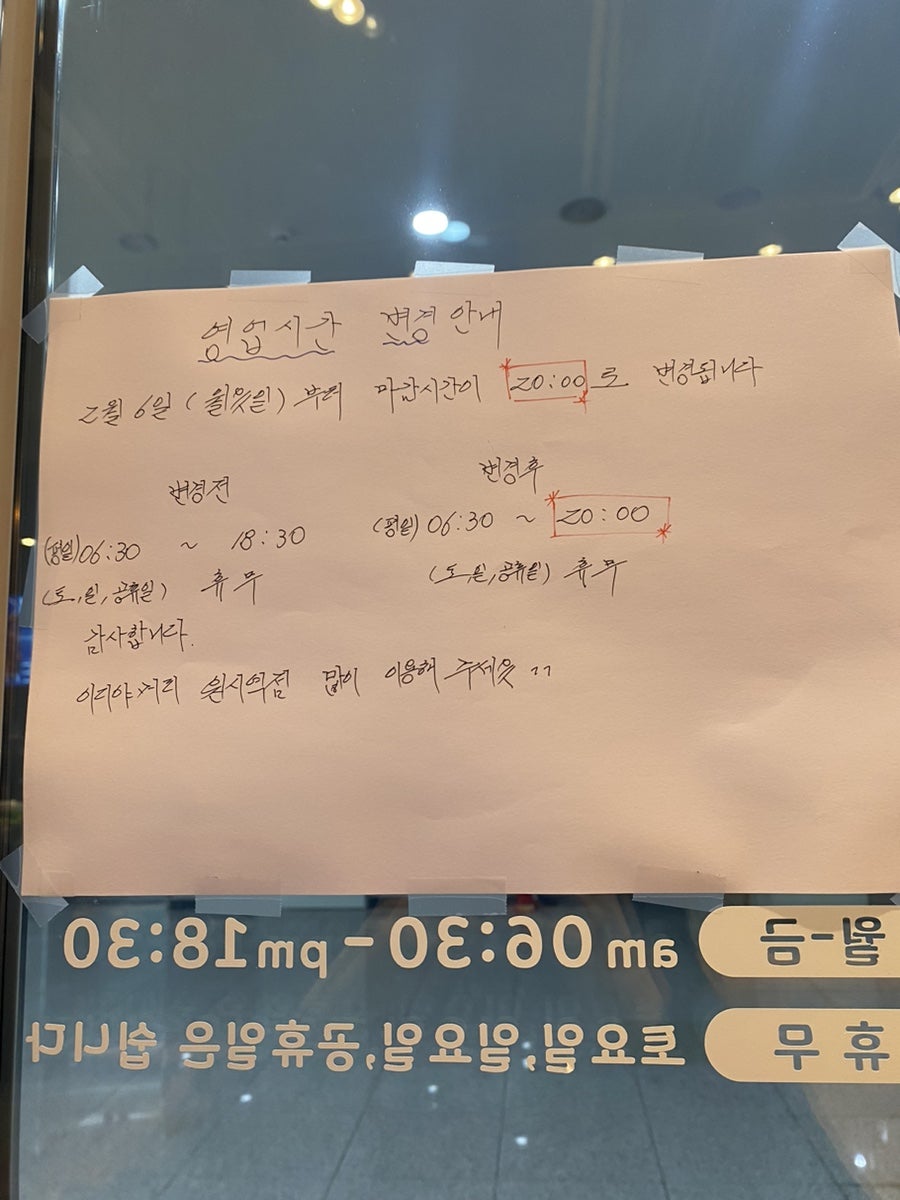 영업시간 변경 안내
2월 6일 (월욧일) 부터 마감시간이 20:00 로 변경됩니다
변경전
변경후
(평일) 06:30 ~ 18:30
(평일) 06:30 ~ 20:00
(토,일,공휴일) 휴무
(토,일,공휴일) 휴무
감사합니다.
이디야커피 원시역점 많이 이용해 주세욧
월-금 am 06:30 - pm 18:30
휴무 토요일,일요일,공휴일은 쉽니다